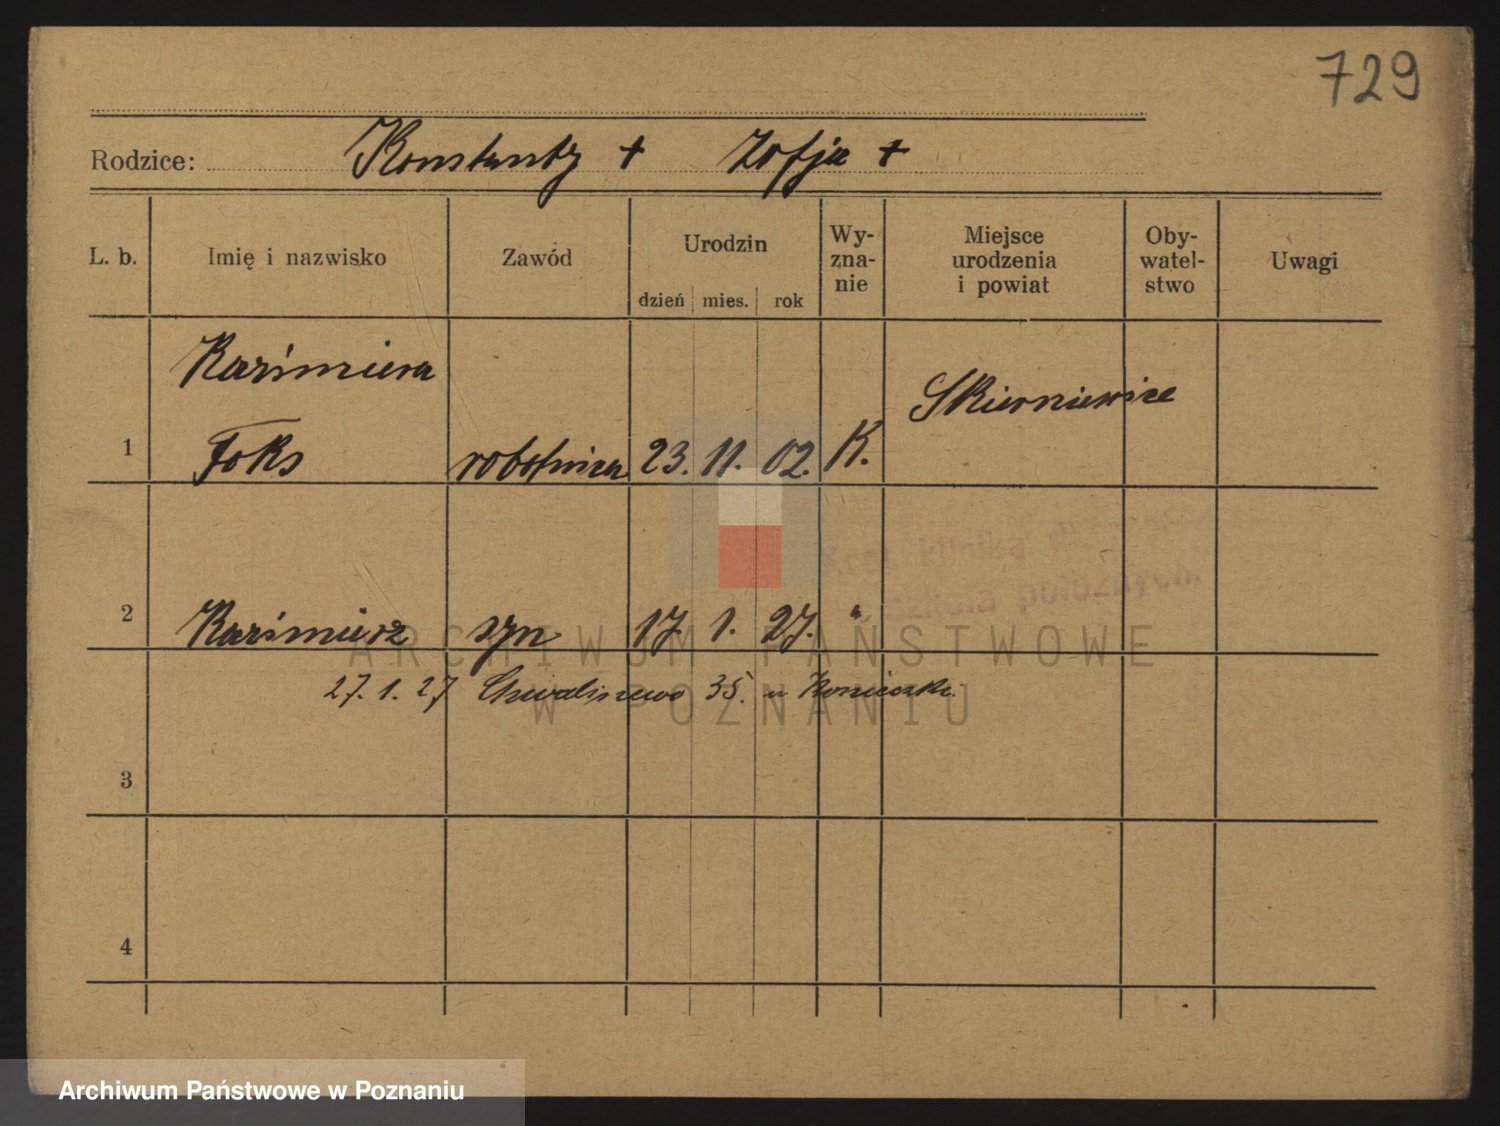 729
Rodzice: Konstanty + Zofja +
L. b. Imię i nazwisko Zawód Urodzin dzień mies. rok Wy-zna-nie Miejsce urodzenia i powiat Oby-watel-stwo Uwagi
Kazimiera
Skierniewice
1 Foks robotnica 23. 11. 02. K.
Kraj. klinika
szkoła położnych
2 Kazimierz syn 17. 1. 27. "
ARCHIWUM PAŃSTWOWE
27. 1. 27 Chwaliszewo 35. u
W POZNANIU
3
4
Archiwum Państwowe w Poznaniu